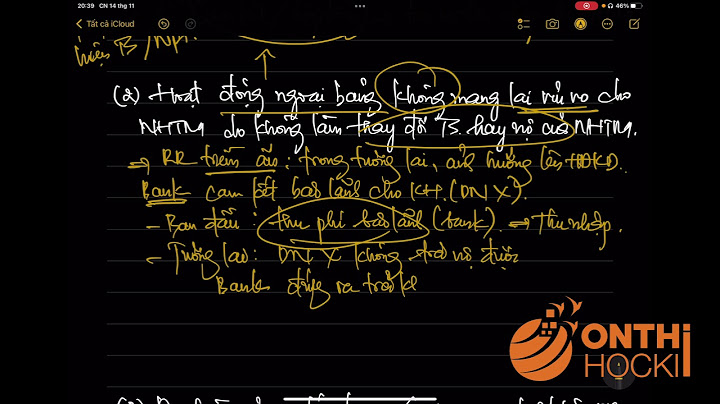 20:39 CN 14 thg 11
46%
Tất cả iCloud
hiện TS / NPT.
(2) Hoạt động ngoại bảng không mang lại rủi ro cho
NHTM do không làm thay đổi TS hay nợ của NHTM.
→ RR tiềm ẩn: trong tương lai, ảnh hưởng lên HĐKD.
Bank cam kết bảo lãnh cho KH. (DN X).
- Ban đầu: thu phí bảo lãnh (bank). ⇒ Thu nhập.
- Tương lai: DN X không trả nợ được
Bank đứng ra trả
ONTHI
HOCKI